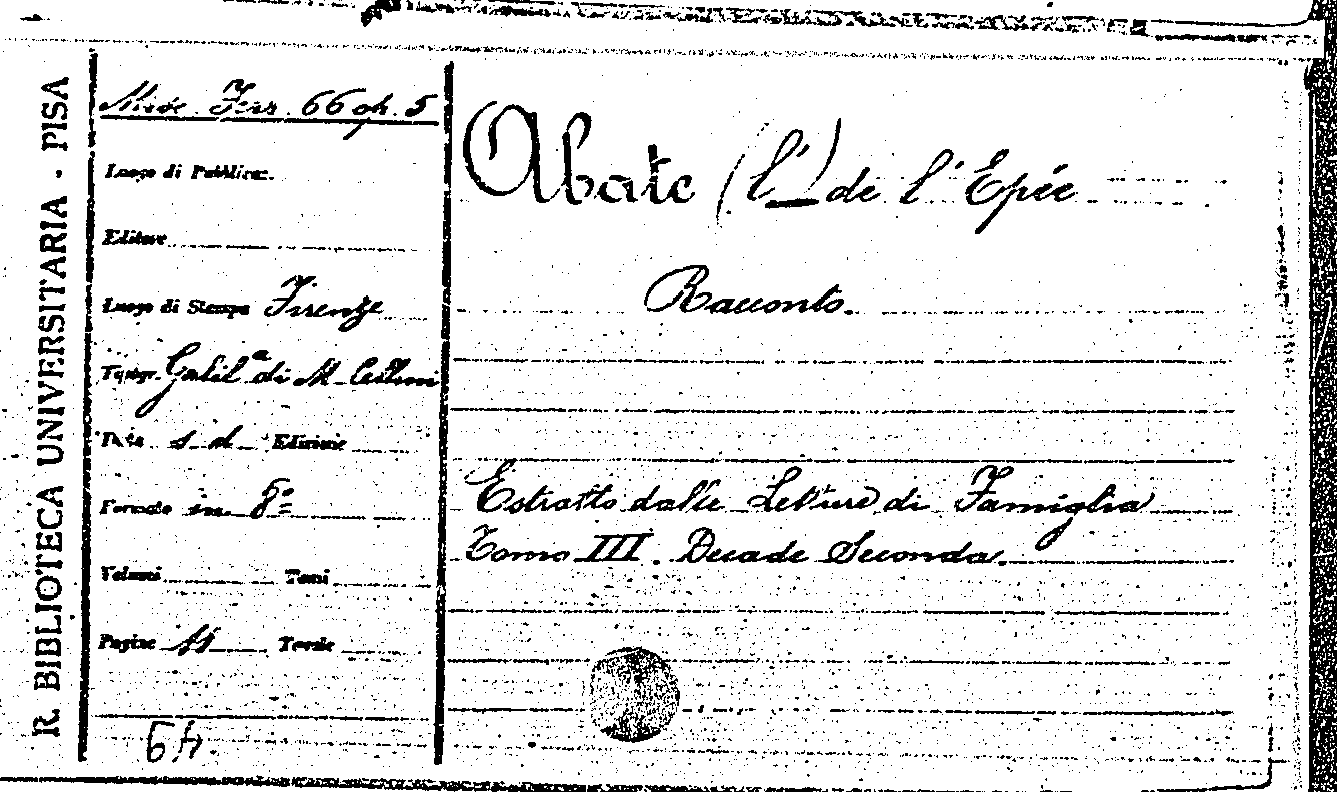 R. BIBLIOTECA UNIVERSITARIA - PISA
Misc. Ferr. 66 op. 5
Luogo di Pubblicaz.
Editore
Luogo di Stampa Firenze
Tipogr. Galil.ª di M. Cellini
Data s. d. Edizione
Formato in 8º
Volumi Tomi
Pagine 11 Tavole
Abate (l'_) de l'Epée
Racconto.
Estratto dalle Letture di Famiglia
Tomo III. Decade Seconda.